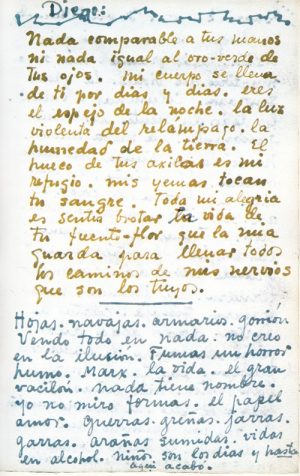 Diego:
Nada comparable a tus manos
ni nada igual al oro-verde de
tus ojos. mi cuerpo se llena
de ti por días y días. eres
el espejo de la noche. la luz
violenta del relámpago. la
humedad de la tierra. El
hueco de tus axilas es mi
refugio. mis yemas tocan
tu sangre. Toda mi alegria
es sentir brotar la vida de
tu fuente-flor que la mia
guarda para llenar todos
los caminos de mis nervios
que son los tuyos.
Hojas. navajas. armarios. gorrion
Vendo todo en nada. no creo
en la ilusión. Fumas un horror
humo. Marx. la vida. el gran
vacilón. nada tiene nombre.
yo no miro formas. el papel
amor. guerras. greñas. jarras.
garras. arañas sumidas. vidas
en alcohol. niños son los días y hasta
aqui acabo.